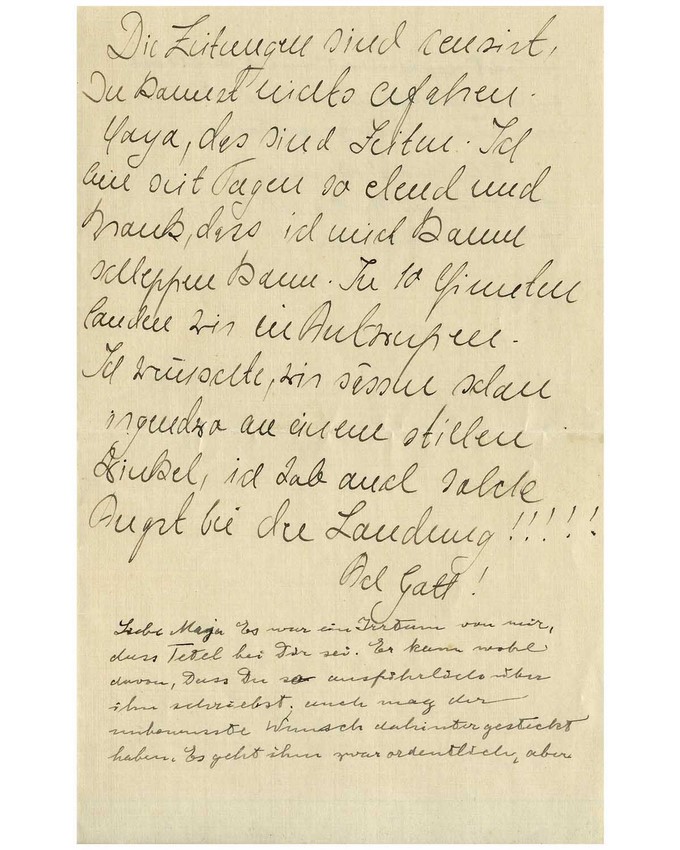 Die Zeitungen sind censirt,
Du kannst nichts erfahren.
Maja, das sind Zeiten. Ich
bin seit Tagen so elend und
krank, dass ich mich kaum
schleppen kann. In 10 Minuten
landen wir in Antwerpen.
Ich wünschte, wir sässen schon
irgendwo an einem stillen
Winkel, ich hab auch solche
Angst bei der Landung!!!!!
Ach Gott!
Liebe Maja Es war ein Irrtum von mir,
dass Tetel bei Dir sei. Er kam wohl
davon, dass Du so ausführlich über
ihn schriebst; auch mag der
unbewusste Wunsch dahinter gesteckt
haben. Es geht ihm zwar ordentlich, aber